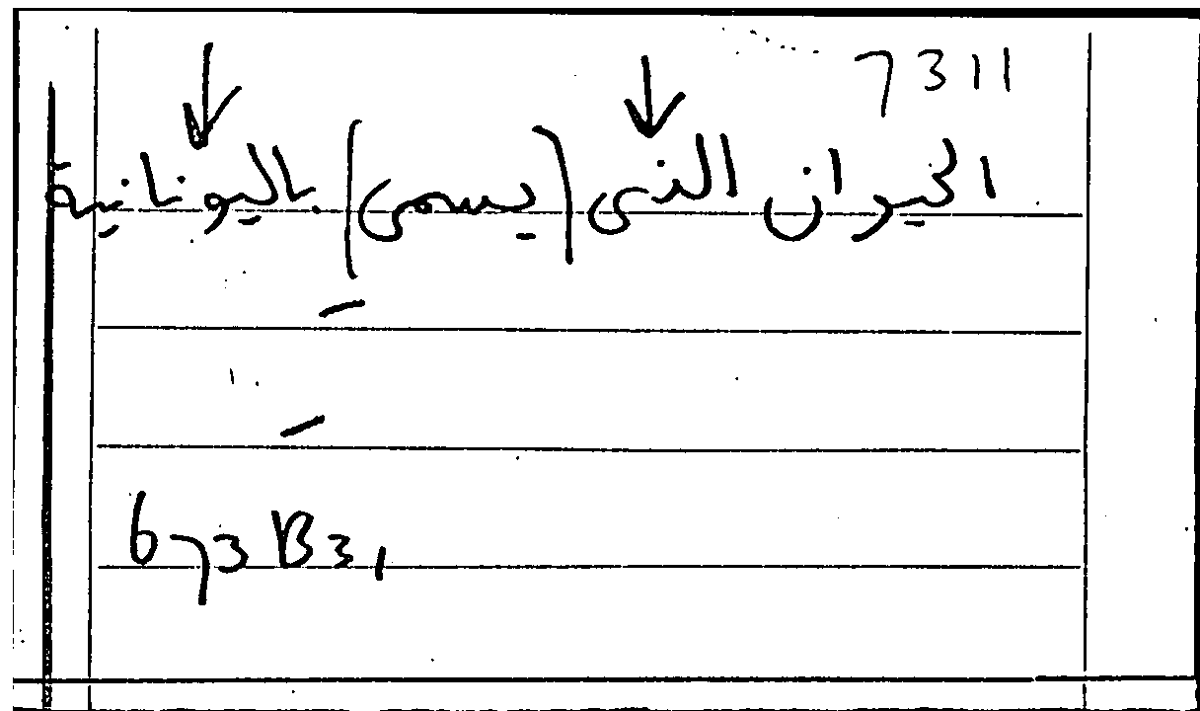 7311
الحيوان الذى (يسمى) باليونانية
673 B 31